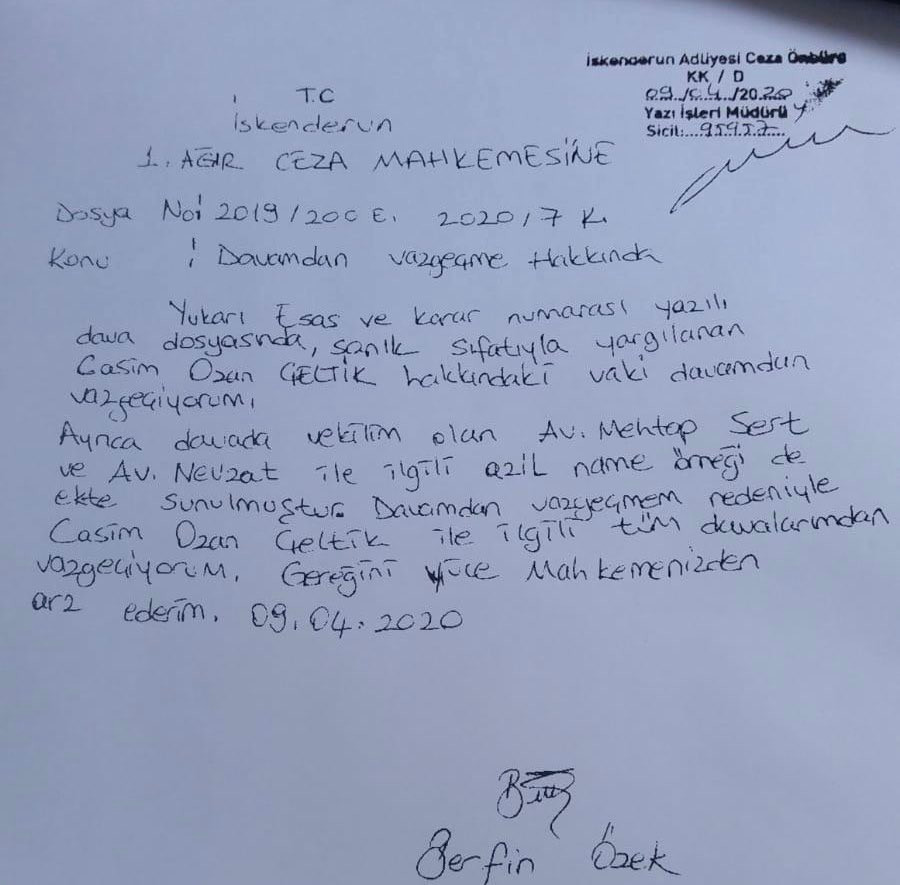 İskenderun Adliyesi Ceza Önbüro
KK / D
09../04../2020
Yazı İşleri Müdürü
Sicil:...95957...
T.C
İskenderun
1. AĞIR CEZA MAHKEMESİNE
Dosya No: 2019/200 E. 2020/7 K.
Konu : Davamdan vazgeçme Hakkında
Yukarı Esas ve karar numarası yazılı
dava dosyasında, sanık sıfatıyla yargılanan
Casim Ozan ÇELTİK hakkındaki vaki davamdan
vazgeçiyorum.
Ayrıca davada vekilim olan Av. Mehtap Sert
ve Av. Nevzat ile ilgili azil name örneği de
ekte sunulmuştur. Davamdan vazgeçmem nedeniyle
Casim Ozan Çeltik ile ilgili tüm davalarımdan
vazgeçiyorum. Gereğini yüce Mahkemenizden
arz ederim. 09.04.2020
Berfin Özek